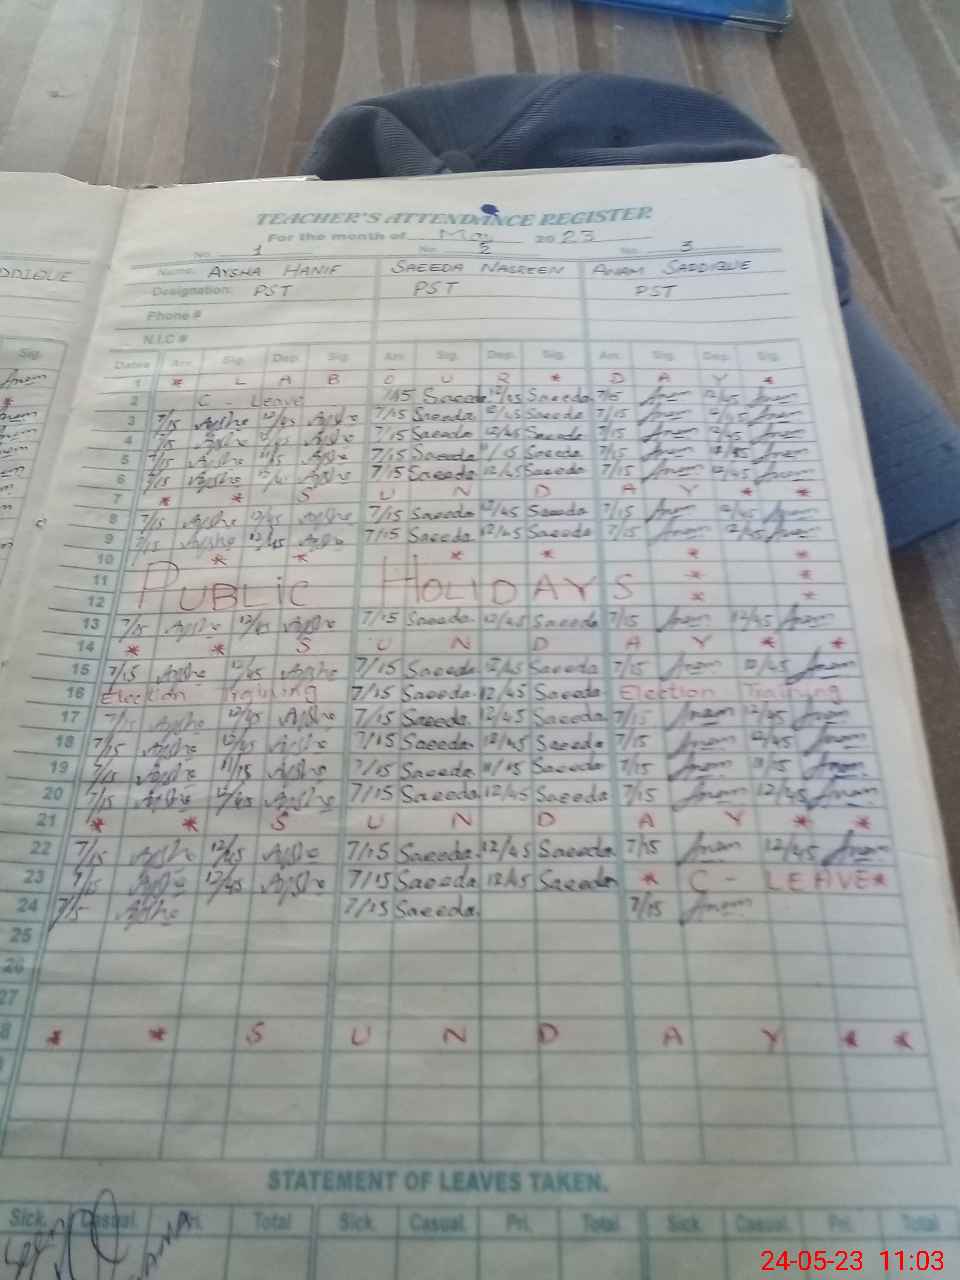 TEACHER'S ATTENDANCE REGISTER
For the month of May 2023
No. 1 No. 2 No. 3
DDIQUE Name: AYSHA HANIF SAEEDA NASREEN ANAM SADDIQUE
Designation: PST PST PST
Phone #
N.I.C #
Sig. Dates Arr. Sig. Dep. Sig. Arr. Sig. Dep. Sig. Arr. Sig. Dep. Sig.
Anam 1 * L A B O U R * D A Y *
* 2 C - Leave 7/15 Saeeda 12/45 Saeeda 7/15 Anam 12/45 Anam
3 7/15 Aysha 12/45 Aysha 7/15 Saeeda 12/45 Saeeda 7/15 Anam 12/45 Anam
4 7/15 Aysha 12/45 Aysha 7/15 Saeeda 12/45 Saeeda 7/15 Anam 12/45 Anam
5 7/15 Aysha 11/15 Aysha 7/15 Saeeda 11/15 Saeeda 7/15 Anam Anam
6 7/15 Aysha 12/45 Aysha 7/15 Saeeda 12/45 Saeeda 7/15 Anam 12/45 Anam
7 * * S U N D A Y * *
8 7/15 Aysha 12/45 Aysha 7/15 Saeeda 12/45 Saeeda 7/15 Anam 12/45 Anam
9 7/15 Aysha 12/45 Aysha 7/15 Saeeda 12/45 Saeeda 7/15 Anam 12/45 Anam
10 * * * * * *
11 PUBLIC HOLIDAYS * *
12 * *
13 7/15 Aysha 12/45 Aysha 7/15 Saeeda 12/45 Saeeda 7/15 Anam 12/45 Anam
14 * * S U N D A Y * *
15 7/15 Aysha 12/45 Aysha 7/15 Saeeda 12/45 Saeeda 7/15 Anam 12/45 Anam
16 Election Training 7/15 Saeeda 12/45 Saeeda Election Training
17 7/15 Aysha 12/45 Aysha 7/15 Saeeda 12/45 Saeeda 7/15 Anam 12/45 Anam
18 7/15 Aysha 12/45 Aysha 7/15 Saeeda 12/45 Saeeda 7/15 Anam 12/45 Anam
19 7/15 Aysha 11/15 Aysha 7/15 Saeeda 11/15 Saeeda 7/15 Anam 11/15 Anam
20 7/15 Aysha 12/45 Aysha 7/15 Saeeda 12/45 Saeeda 7/15 Anam 12/45 Anam
21 * * S U N D A Y * *
22 7/15 Aysha 12/45 Aysha 7/15 Saeeda 12/45 Saeeda 7/15 Anam 12/45 Anam
23 7/15 Aysha 12/45 Aysha 7/15 Saeeda 12/45 Saeeda * C - LEAVE *
24 7/15 Aysha 7/15 Saeeda 7/15 Anam
25
26
27
8 * * S U N D A Y * *
STATEMENT OF LEAVES TAKEN.
Sick. Casual. Pri. Total Sick. Casual. Pri. Total Sick. Casual. Pri. Total
24-05-23 11:03